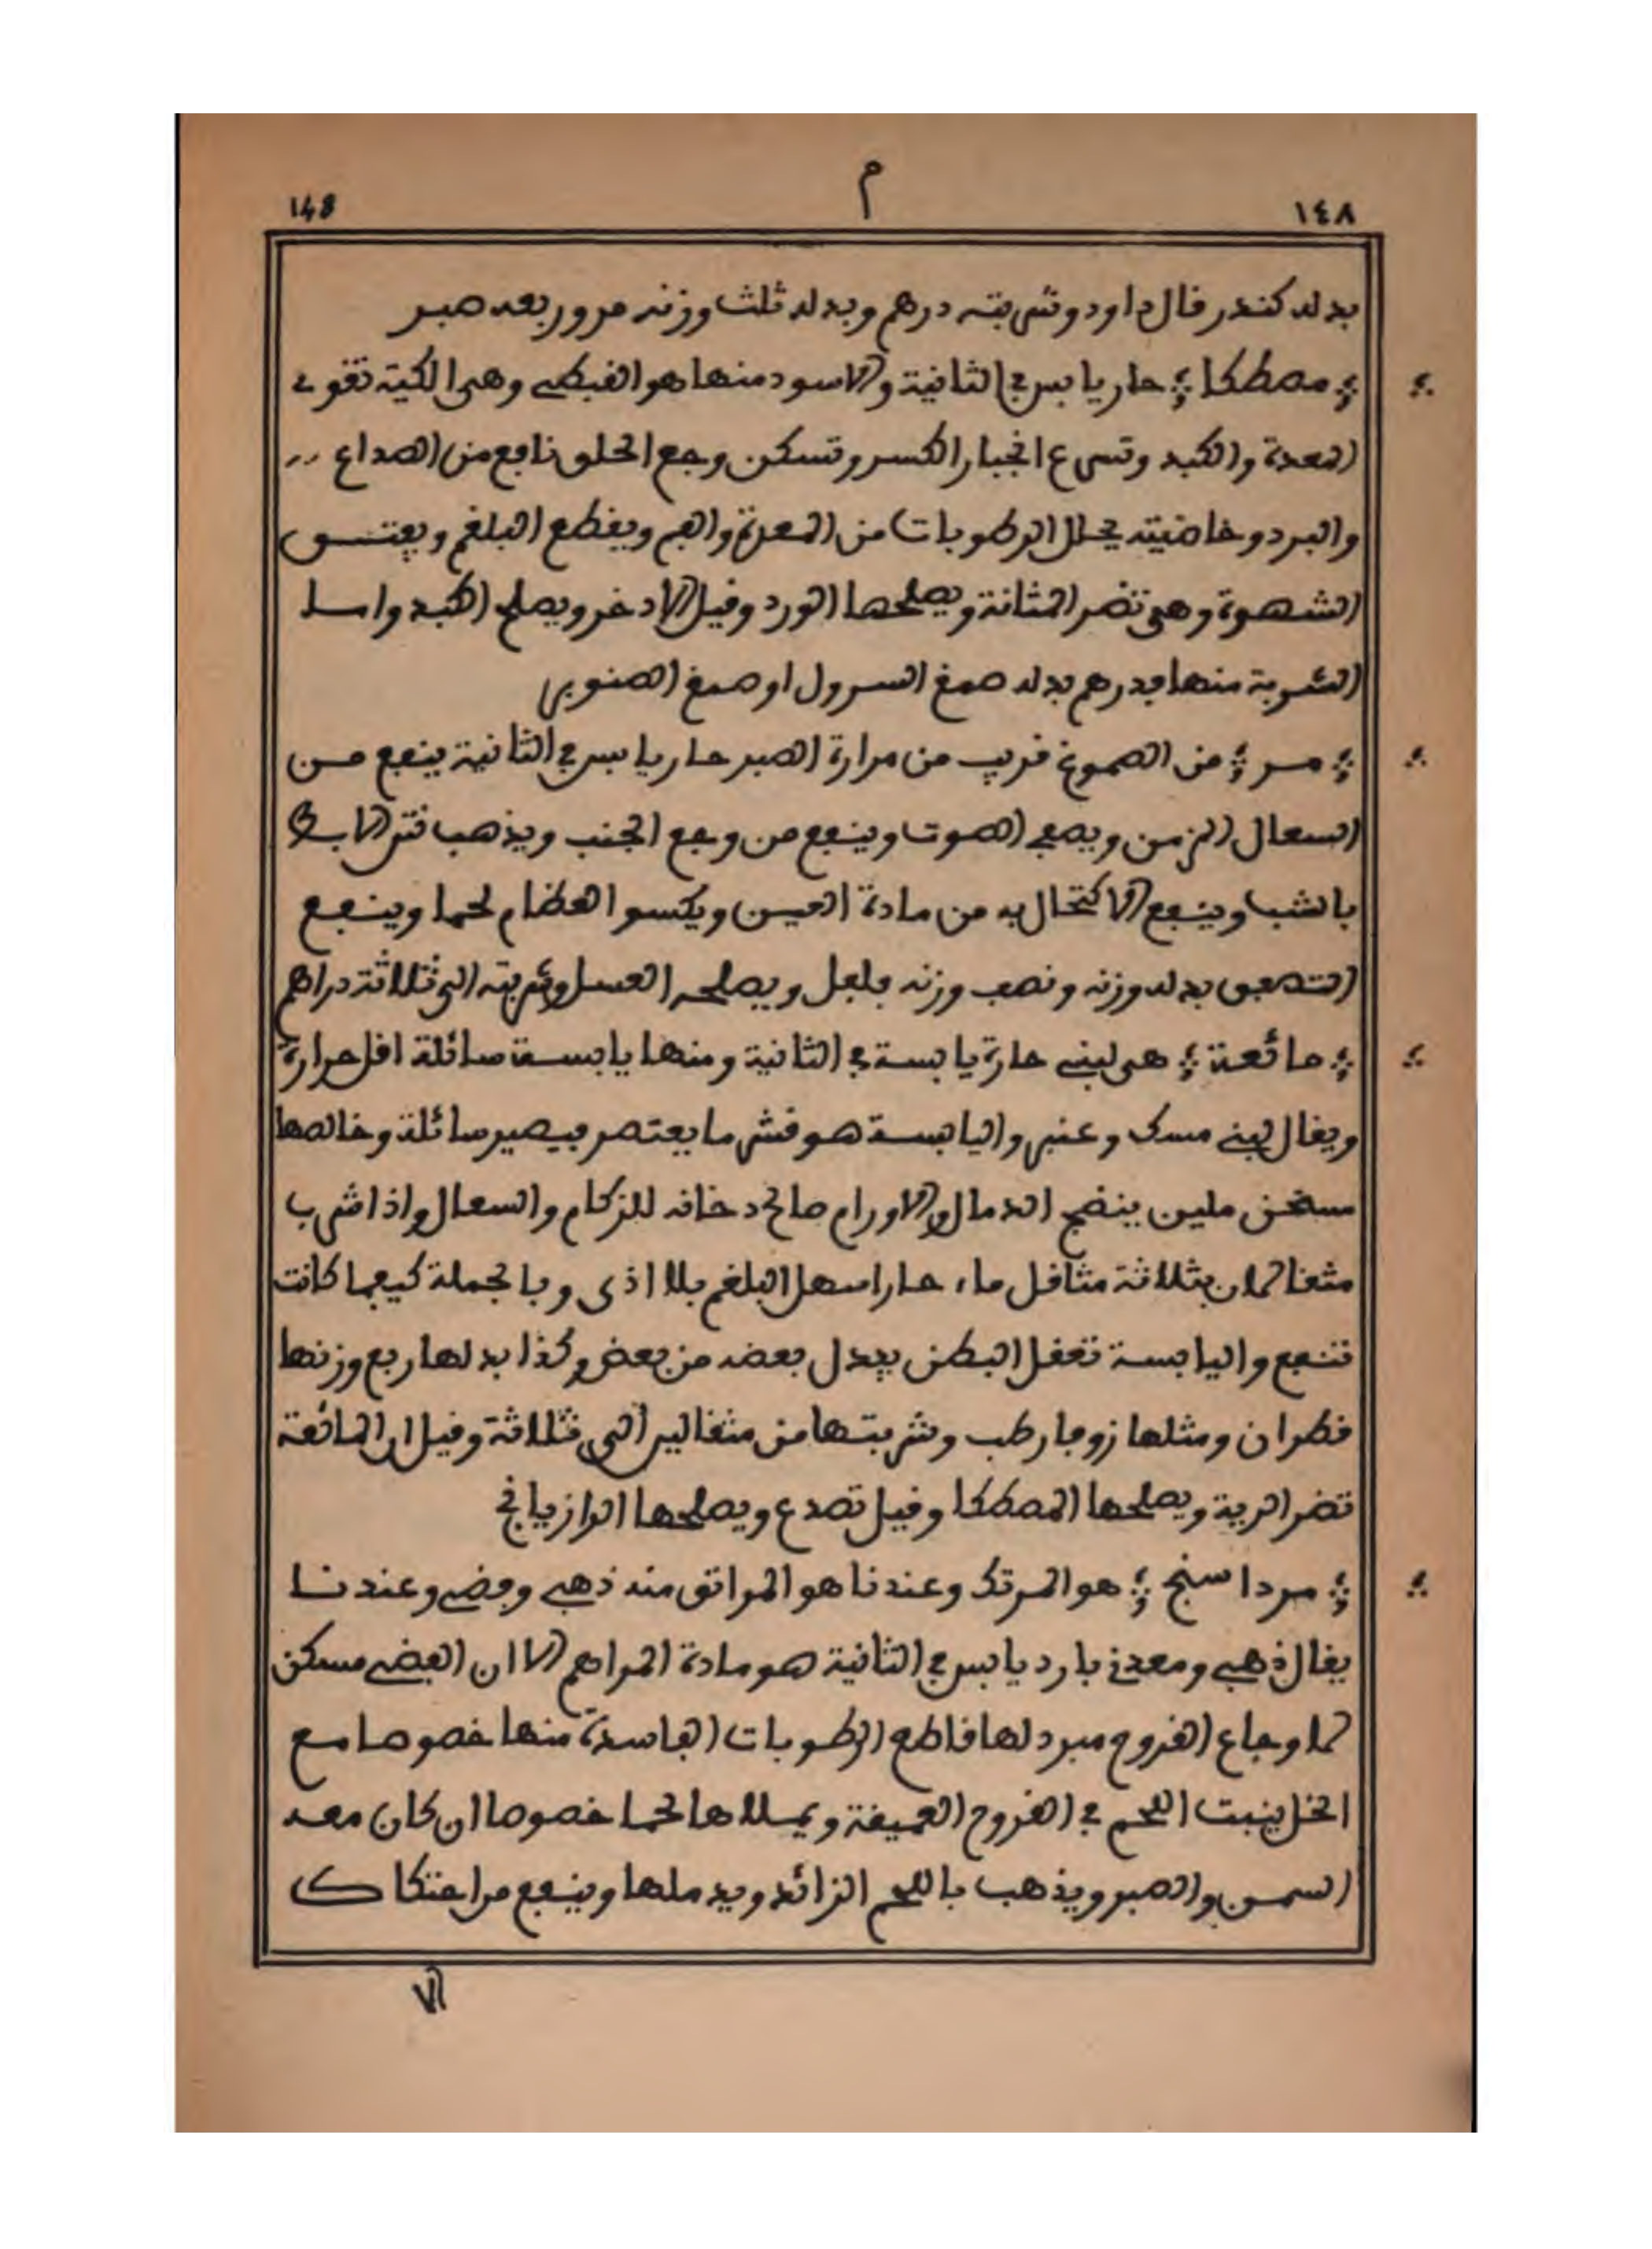 148 م ١٤٨
بدله كندر قال داود وشربته درهم وبدله ثلث وزنه مرور بعه صبر
مصطكا حار يابس في الثانية والاسود منها هو القبطي وهي الكية تقوي
المعدة والكبد وتسرع انجبار الكسر وتسكن وجع الحلق نافع من الصداع
والبرد وخاصيته يحلل الرطوبات من المعدة والفم ويقطع البلغم ويفتق
الشهوة وهي تضر المثانة ويصلحها الورد وقيل الاذخر ويصلح الكبد واسا
الشربة منها قدرهم بدله صمغ السرول او صمغ الصنوبر
مر من الصموغ قريب من مرارة الصبر حار يابس في الثانية ينفع من
السعال المزمن ويصفي الصوت وينفع من وجع الجنب ويذهب نتن الابط
بالشب وينفع الاكتحال به من مادة العين ويكسوا العظام لحما وينفع
التصفق بدله وزنه ونصف وزنه فلفل ويصلحه العسل وشربته الى ثلاثة دراهم
مائعة هي لبنى حارة يابسة في الثانية ومنها يابسة سائلة اقل حرارة
ويقال لبنى مسك وعنبر واليابسة هو قشر ما يعتصر فيصير سائلة وخالصها
سخن ملين ينضج الدمال والاورام صالح دخانه للزكام والسعال واذا شرب
مثقالان بثلاثة مثاقل ماء حار اسهل البلغم بلا اذى وبالجملة كيفما كانت
تنفع واليابسة تعقل البطن يبدل بعضه من بعض وكذا بدلها ربع وزنها
قطران ومثلها زوفا رطب وشربتها من مثقالير الى ثلاثة وقيل ان المائعة
تضر الرية ويصلحها المصطكا وقيل تصدع ويصلحها الرازيانج
مرداسنج هو المرتك وعندنا هو المراتق منه ذهبي وفضي وعندنا
يقال ذهبي ومعدني بارد يابس في الثانية هو مادة المراهم الا ان الفضي مسكن
لما وجاع القروح مبرد لها قاطع الرطوبات الفاسدة منها خصوصا مع
الخل ينبت اللحم في القروح العميقة ويمللاها لحما خصوصا ان كان معه
السمن والصبر ويذهب باللحم الزائد ويدملها وينفع من احتكاك
الا